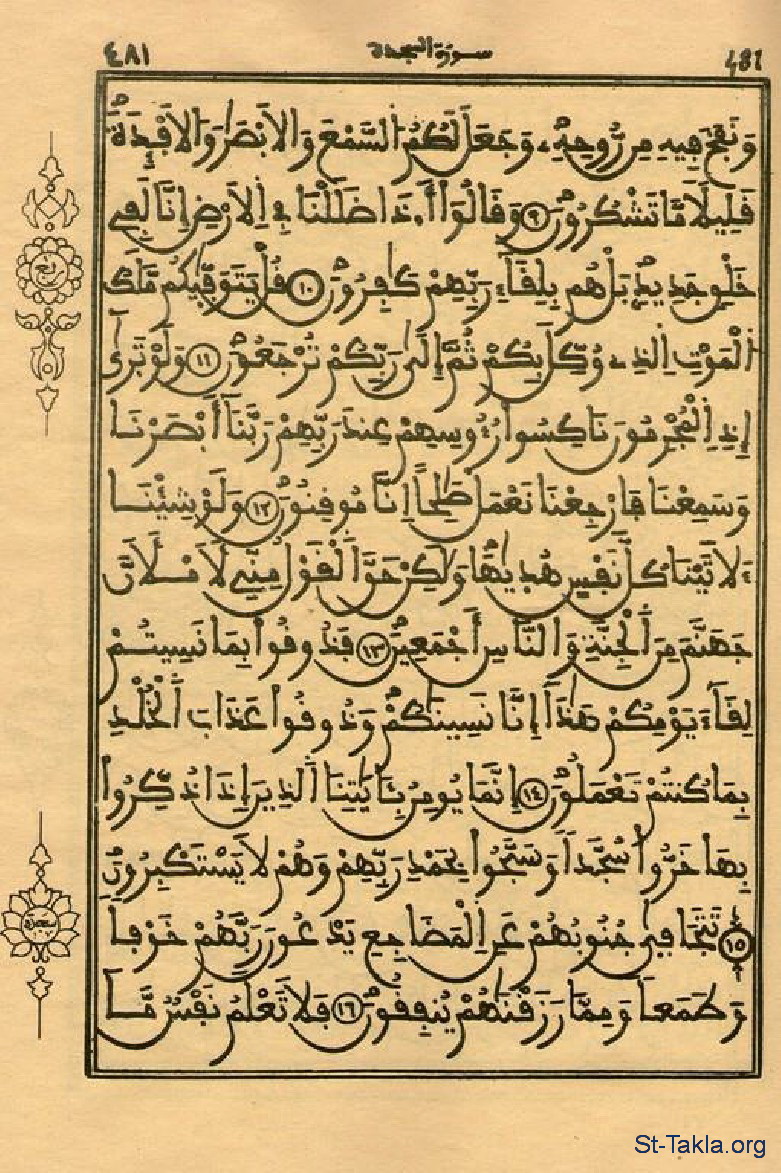 ٤٨١ سورة السجدة 481
وَنَفَخَ فِيهِ مِن رُّوحِهِۦ وَجَعَلَ لَكُمُ اُلسَّمْعَ وَالَابْصَٰرَ وَالَافْـِٕدَةَۖ
قَلِيلاٗ مَّا تَشْكُرُونَۖ ٩ وَقَالُوٓاْ أَ.ذَا ضَلَلْنَا فِے اِلَارْضِ إِنَّا لَفِے
خَلْقٖ جَدِيدِۢ بَلْ هُم بِلِقَآءِ رَبِّهِمْ كَٰفِرُونَۖ ١٠ قُلْ يَتَوَفّ۪يٰكُم مَّلَكُ
اُلْمَوْتِ اِلذِے وُكِّلَ بِكُمْ ثُمَّ إِلَىٰ رَبِّكُمْ تُرْجَعُونَۖ ١١ وَلَوْ تَر۪ىٰٓ
إِذِ اِلْمُجْرِمُونَ نَاكِسُواْ رُءُوسِهِمْ عِندَ رَبِّهِمْ رَبَّنَآ أَبْصَرْنَا
وَسَمِعْنَا فَارْجِعْنَا نَعْمَلْ صَٰلِحاً اِنَّا مُوقِنُونَۖ ١٢ وَلَوْ شِئْنَا
ءَلَاتَيْنَا كُلَّ نَفْسٍ هُد۪يٰهَا وَلَٰكِنْ حَقَّ اَلْقَوْلُ مِنِّے لَأَمْلَأَنَّ
جَهَنَّمَ مِنَ اَلْجِنَّةِ وَالنَّاسِ أَجْمَعِينَۖ ١٣ فَذُوقُواْ بِمَا نَسِيتُمْ
لِقَآءَ يَوْمِكُمْ هَٰذَآ إِنَّا نَسِينَٰكُمْۖ وَذُوقُواْ عَذَابَ اَلْخُلْدِ
بِمَا كُنتُمْ تَعْمَلُونَۖ ١٤ إِنَّمَا يُومِنُ بِـَٔايَٰتِنَا اَلذِينَ إِذَا ذُكِّرُواْ
بِهَا خَرُّواْ سُجَّداٗ وَسَبَّحُواْ بِحَمْدِ رَبِّهِمْ وَهُمْ لَا يَسْتَكْبِرُونَۖ
١٥ تَتَجَاف۪ىٰ جُنُوبُهُمْ عَنِ اِلْمَضَاجِعِ يَدْعُونَ رَبَّهُمْ خَوْفاٗ
وَطَمَعاٗ وَمِمَّا رَزَقْنَٰهُمْ يُنفِقُونَۖ ١٦ فَلَا تَعْلَمُ نَفْسٞ مَّآ
ربع
سجدة
St-Takla.org